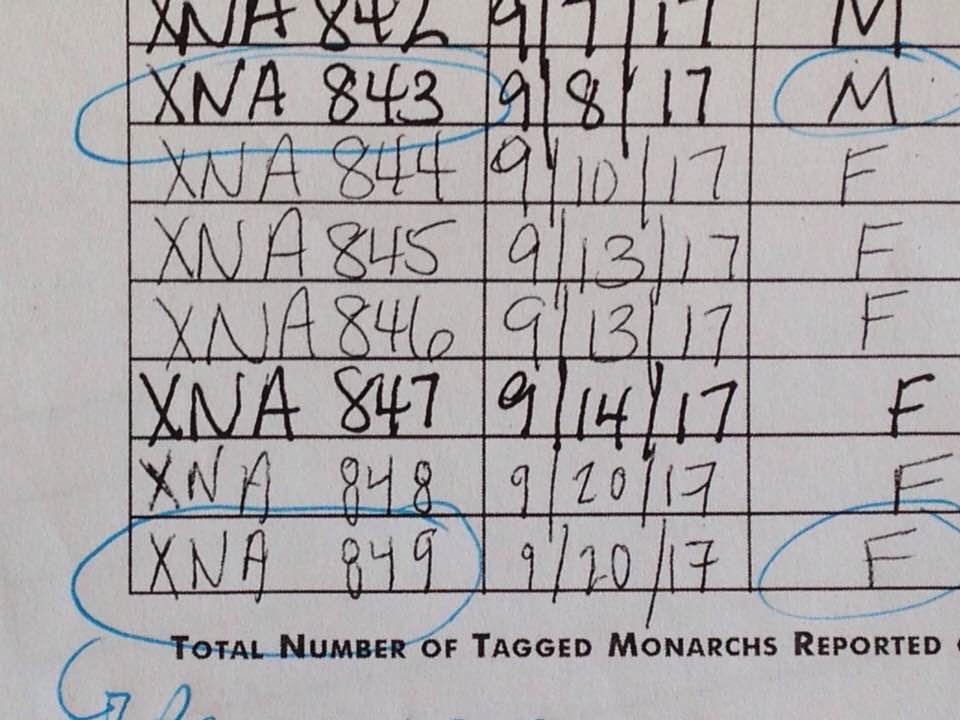 XNA 842 9/7/17 M
XNA 843 9/8/17 M
XNA 844 9/10/17 F
XNA 845 9/13/17 F
XNA 846 9/13/17 F
XNA 847 9/14/17 F
XNA 848 9/20/17 F
XNA 849 9/20/17 F
TOTAL NUMBER OF TAGGED MONARCHS REPORTED